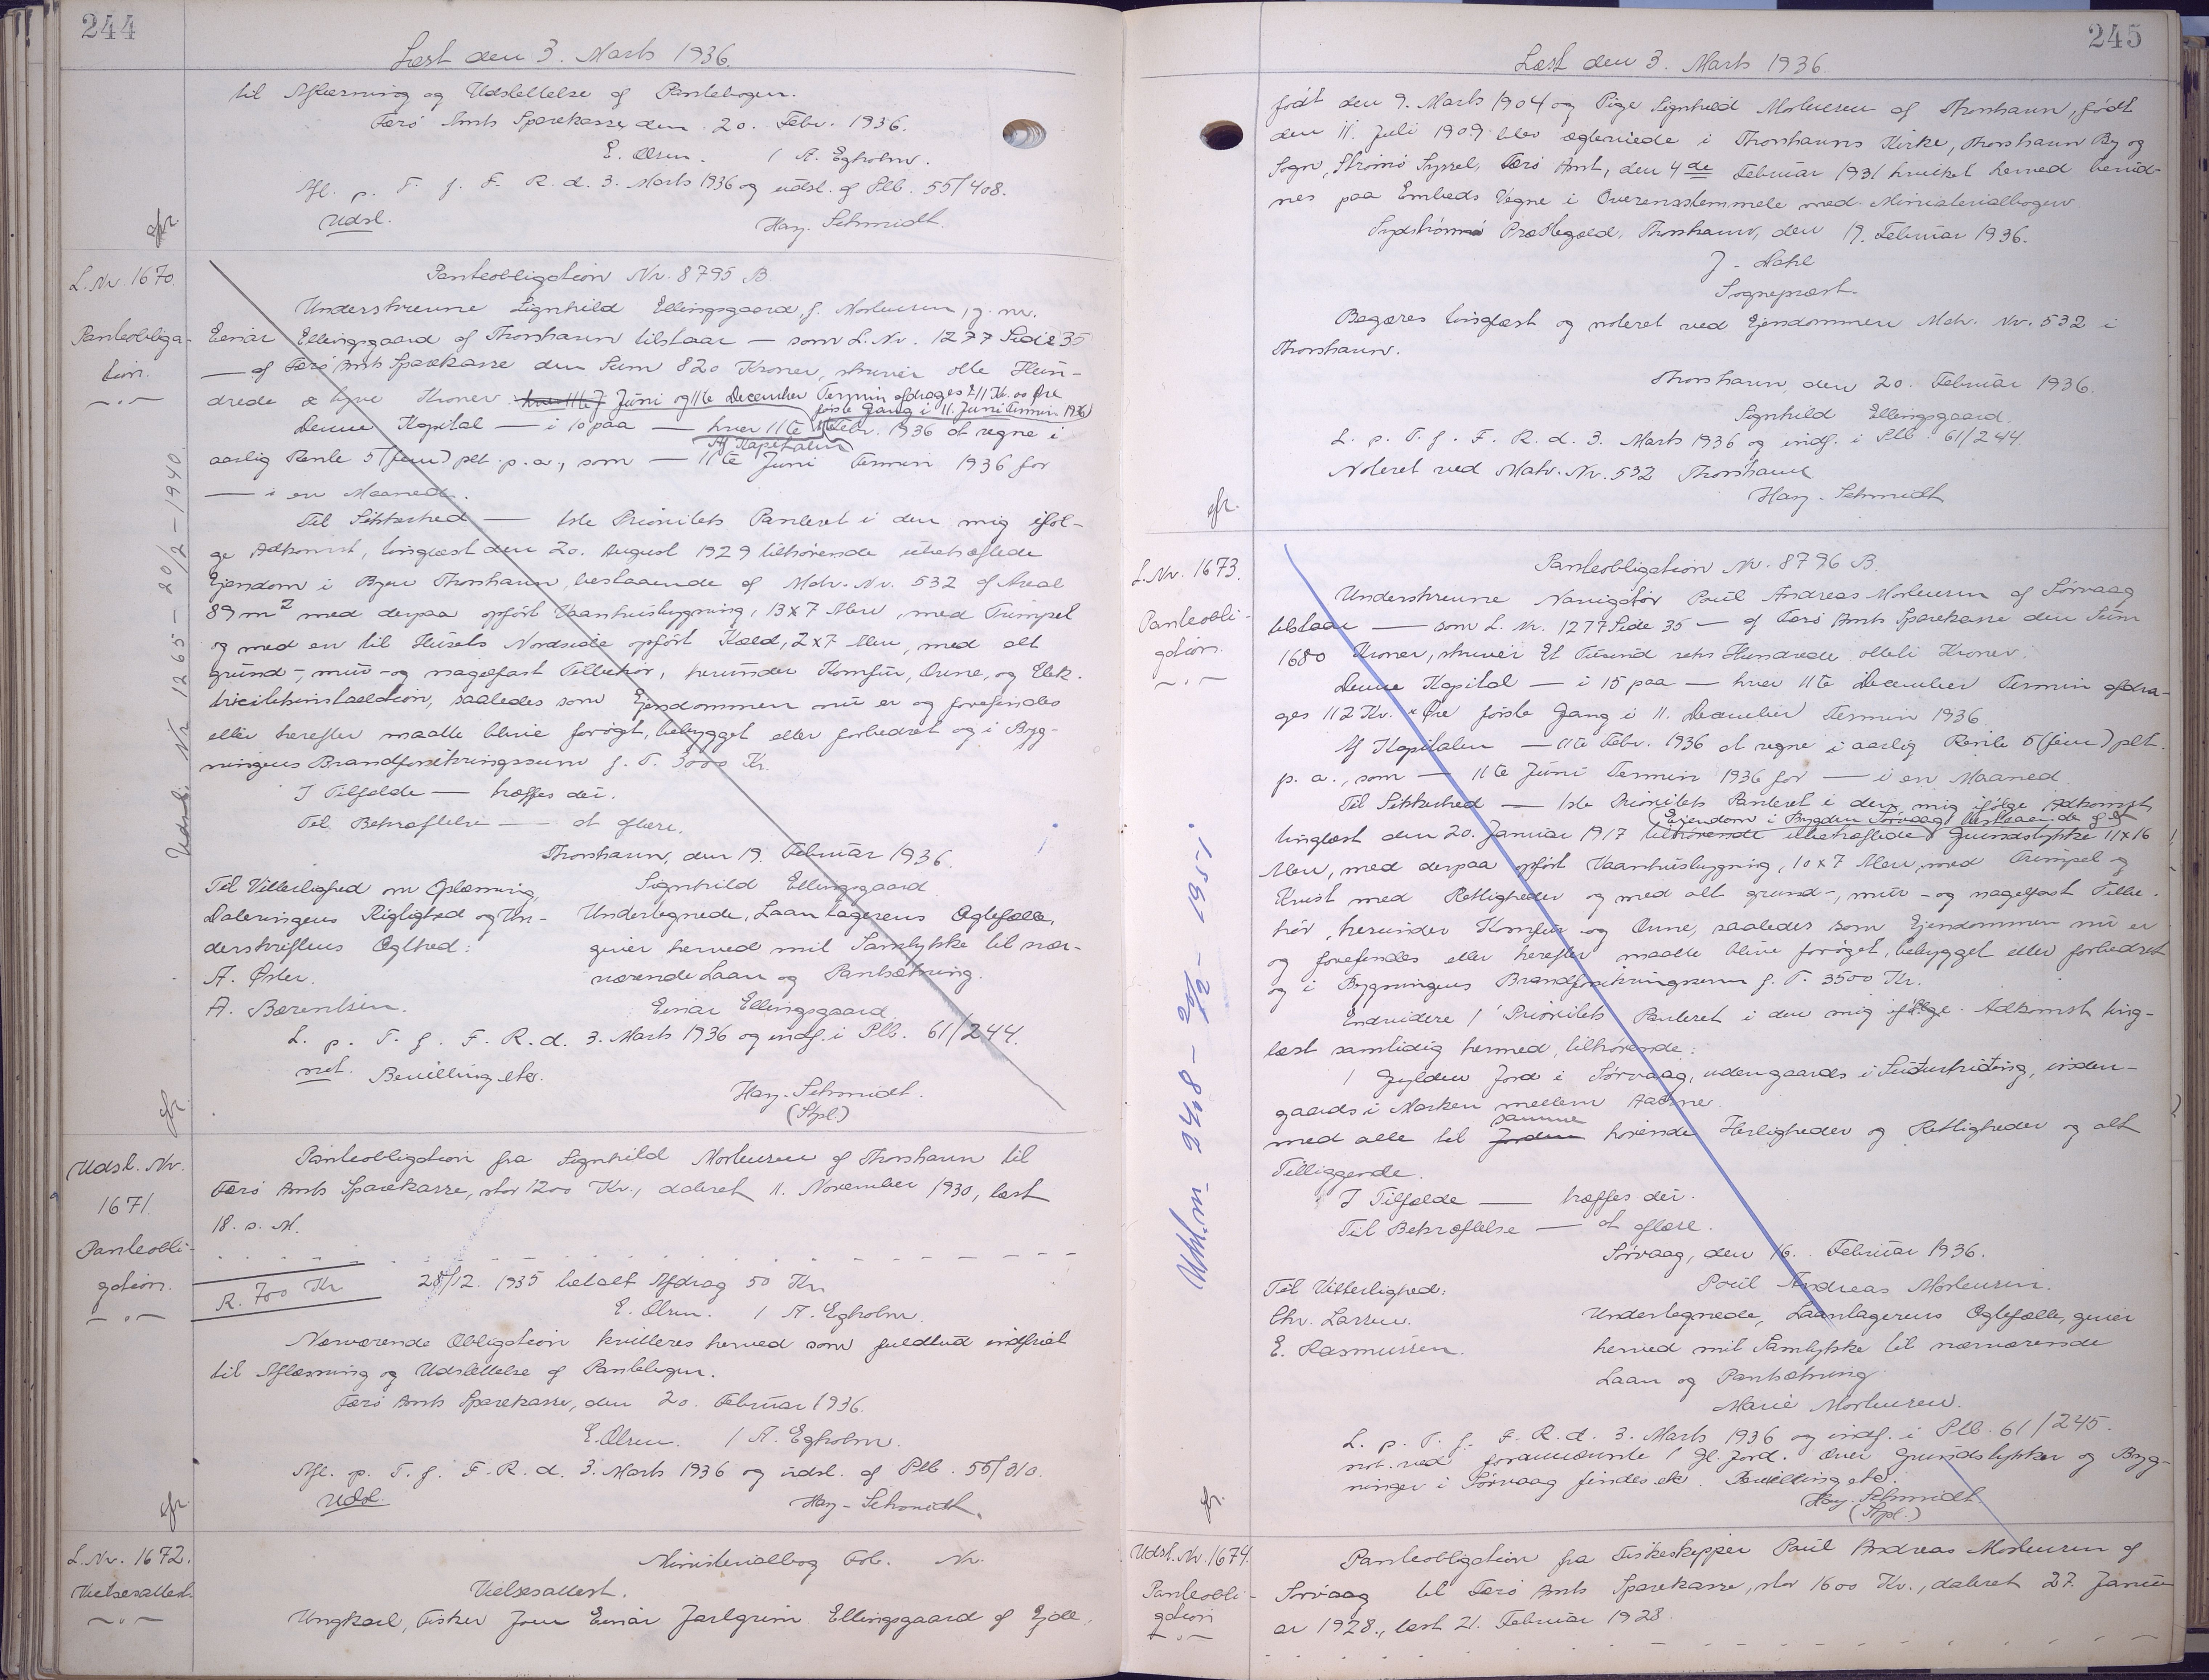 244
Læst den 3. Marts 1936.
til Aflæsning og Udslettelse af Pantebogen.
Færø Amts Sparekasse, den 20. Febr. 1936.
E. Olsen. / A. Egholm.
Afl. p. T. f. F. R. d. 3. Marts 1936 og udsl. af Plb. 55/408.
Udsl. Hary. Schmidt.
L. Nr. 1670.
Panteobliga-
tion.
Udsl. Nr. 1265 - 20/2 - 1940.
Panteobligation Nr. 8795 B.
Underskrevne Signhild Ellingsgaard f. Mortensen, g. m.
Einar Ellingsgaard af Thorshavn tilstaar — som L. Nr. 1277 Side 35
— af Færø Amts Sparekasse den Sum 820 Kroner, skriver otte Hun-
drede & tyve Kroner. Juni og 11te December Termin afdrages 11 Kr. 00 Øre
første Gang i 11. Juni Termin 1936
Denne Kapital — i 10 paa — hver 11te Febr. 1936 at regne i
Af Kapitalen
aarlig Rente 5 (fem) pct. p. a., som — 11te Juni Termin 1936 for
— i en Maaned.
Til Sikkerhed — 1ste Prioritets Panteret i den mig iføl-
ge Adkomst, tinglæst den 20. August 1929 tilhørende ubehæftede
Ejendom i Byen Thorshavn, bestaaende af Matr. Nr. 532 af Areal
89 m² med derpaa opført Vaanhusbygning, 13 x 7 Alen, med Trempel
og med en til Husets Nordside opført Kæld, 2x7 Alen, med alt
grund-, mur- og nagelfast Tilbehør, herunder Komfur, Ovne, og Elek-
tricitetsinstallation, saaledes som Ejendommen nu er og forefindes
eller herefter maatte blive forøgt, bebygget eller forbedret og i Byg-
ningens Brandforsikringssum f. T. 3000 Kr.
I Tilfælde — træffes dei.
Til Bekræftelse — at aflære.
Thorshavn, den 19. Februar 1936.
Til Vitterlighed om Oplæsning,
Dateringens Rigtighed og Un-
derskriftens Ægthed:
A. Øster.
A. Bærentsen.
Signhild Ellingsgaard.
Undertegnede, Laantagerens Ægtefælle,
giver herved mit Samtykke til nær-
værende Laan og Pantsætning.
Einar Ellingsgaard
L. p. T. f. F. R. d. 3. Marts 1936 og indf. i Plb. 61/244.
not. Bevilling etc.
Hary. Schmidt.
(Stpl.)
Udsl. Nr.
1671.
Panteobli-
gation.
Panteobligation fra Signhild Mortensen af Thorshavn til
Færø Amts Sparekasse, stor 1200 Kr., dateret 11. November 1930, læst
18. s. M.
R. 700 Kr 28/12. 1935 betalt Afdrag 50 Kr.
E. Olsen. / A. Egholm.
Nærværende Obligation kvitteres herved som fuldtud indfriet
til Aflæsning og Udslettelse af Pantebogen.
Færø Amts Sparekasse, den 20. Februar 1936.
E. Olsen. / A. Egholm.
Afl. p. T. f. F. R. d. 3. Marts 1936 og udsl. af Plb. 55/310.
Udsl. Hary. Schmidt.
L. Nr. 1672.
Vielsesattest.
Ministerialbog Fol. Nr.
Vielsesattest.
Ungkarl, Fisker Joen Einar Jarlgrim Ellingsgaard af Ejde,
245
Læst den 3. Marts 1936.
født den 9. Marts 1904 og Pige Signhild Mortensen af Thorshavn, født
den 11. Juli 1909 blev ægteviede i Thorshavns Kirke, Thorshavn By og
Sogn, Strømø Syssel, Færø Amt, den 4de Februar 1931 hvilket herved bevid-
nes paa Embeds Vegne i Overensstemmelse med Ministerialbogen
Sydstrømø Præstegæld, Thorshavn, den 19. Februar 1936.
Sognepræst.
Begæres tinglæst og noteret ved Ejendommen Matr. Nr. 532 i
Thorshavn.
Thorshavn, den 20. Februar 1936.
Signhild Ellingsgaard.
L. p. T. f. F. R. d. 3. Marts 1936 og indf. i Plb. 61/244.
Noteret ved Matr. Nr. 532 Thorshavn
Hary. Schmidt
L. Nr. 1673.
Panteobli-
gation.
20/12 - 1951
Panteobligation Nr. 8796 B.
Underskrevne Navigatør Poul Andreas Mortensen af Sørvaag
tilstaar — som L. Nr. 1277 Side 35 — af Færø Amts Sparekasse den Sum
1680 Kroner, skriver Et Tusind seks Hundrede otteti Kroner.
Denne Kapital — i 15 paa — hver 11te December Termin afdra-
ges 112 Kr. " Øre første Gang i 11. December Termin 1936.
Af Kapitalen — 11te Febr. 1936 at regne i aarlig Rente 5 (fem) pct.
p. a., som — 11te Juni Termin 1936 for — i en Maaned.
Til Sikkerhed — 1ste Prioritets Panteret i den mig ifølge Adkomst,
Ejendom i Bygden Sørvaag, bestaaende af et
tinglæst den 20. Januar 1917 tilhørende ubehæftede Grundstykke 11x16
Alen, med derpaa opført Vaanhusbygning, 10 x 7 Alen, med Trempel og
Kvist med Rettigheder og med alt grund-, mur- og nagelfast Tilbe-
hør, herunder Komfur og Ovne, saaledes som Ejendommen nu er
og forefindes eller herefter maatte blive forøget, bebygget eller forbedret
og i Bygningens Brandforsikringssum f. T. 3500 Kr.
Endvidere 1' Prioritets Panteret i den mig ifølge Adkomst ting-
læst samtidig hermed, tilhørende:
1 Gylden Jord i Sørvaag, udengaards i Suduthriding, inden-
gaards i Marken mellem Aaerne
samme
med alle til Jorden hørende Herligheder og Rettigheder og alt
Tilliggende.
I Tilfælde — træffes dei.
Til Bekræftelse — at aflære.
Sørvaag, den 16. Februar 1936.
Til Vitterlighed:
Chr. Larsen.
E. Rasmussen.
Poul Andreas Mortensen.
Undertegnede, Laantagerens Ægtefælle, giver
herved mit Samtykke til nærværende
Laan og Pantsætning
Marie Mortensen.
L. p. T. f. F. R. d. 3. Marts 1936 og indf. i Plb. 61/245.
not. ved forannævnte 1 Gl. Jord. Over Grundstykker og Byg-
ninger i Sørvaag findes ek. Bevilling etc.
Hary. Schmidt
(Stpl.)
Udsl. Nr. 1674.
Panteobli-
gation
Panteobligation fra Fiskeskipper Poul Andreas Mortensen af
Sørvaag til Færø Amts Sparekasse, stor 1600 Kr., dateret 27. Janu-
ar 1928, læst 21. Februar 1928.